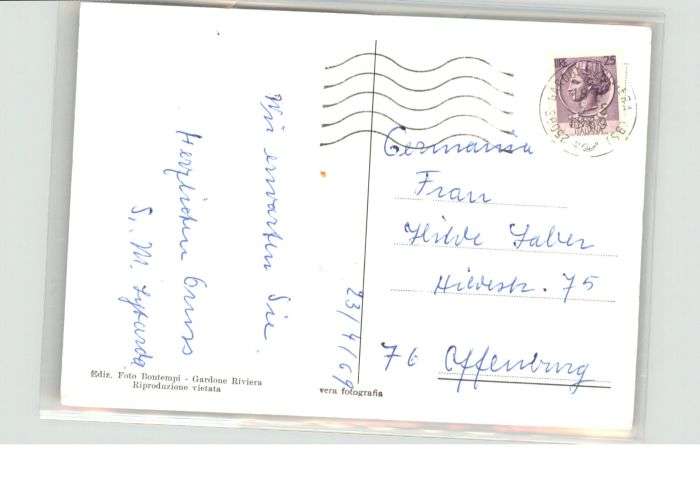 Wir erwarten Sie.
Herzlichen Gruss
S. M.
23/4/69
Ediz. Foto Bontempi - Gardone Riviera
Riproduzione vietata
vera fotografia
LIRE 25
Germania
Frau
Hilde
Hildastr. 75
76 Offenburg